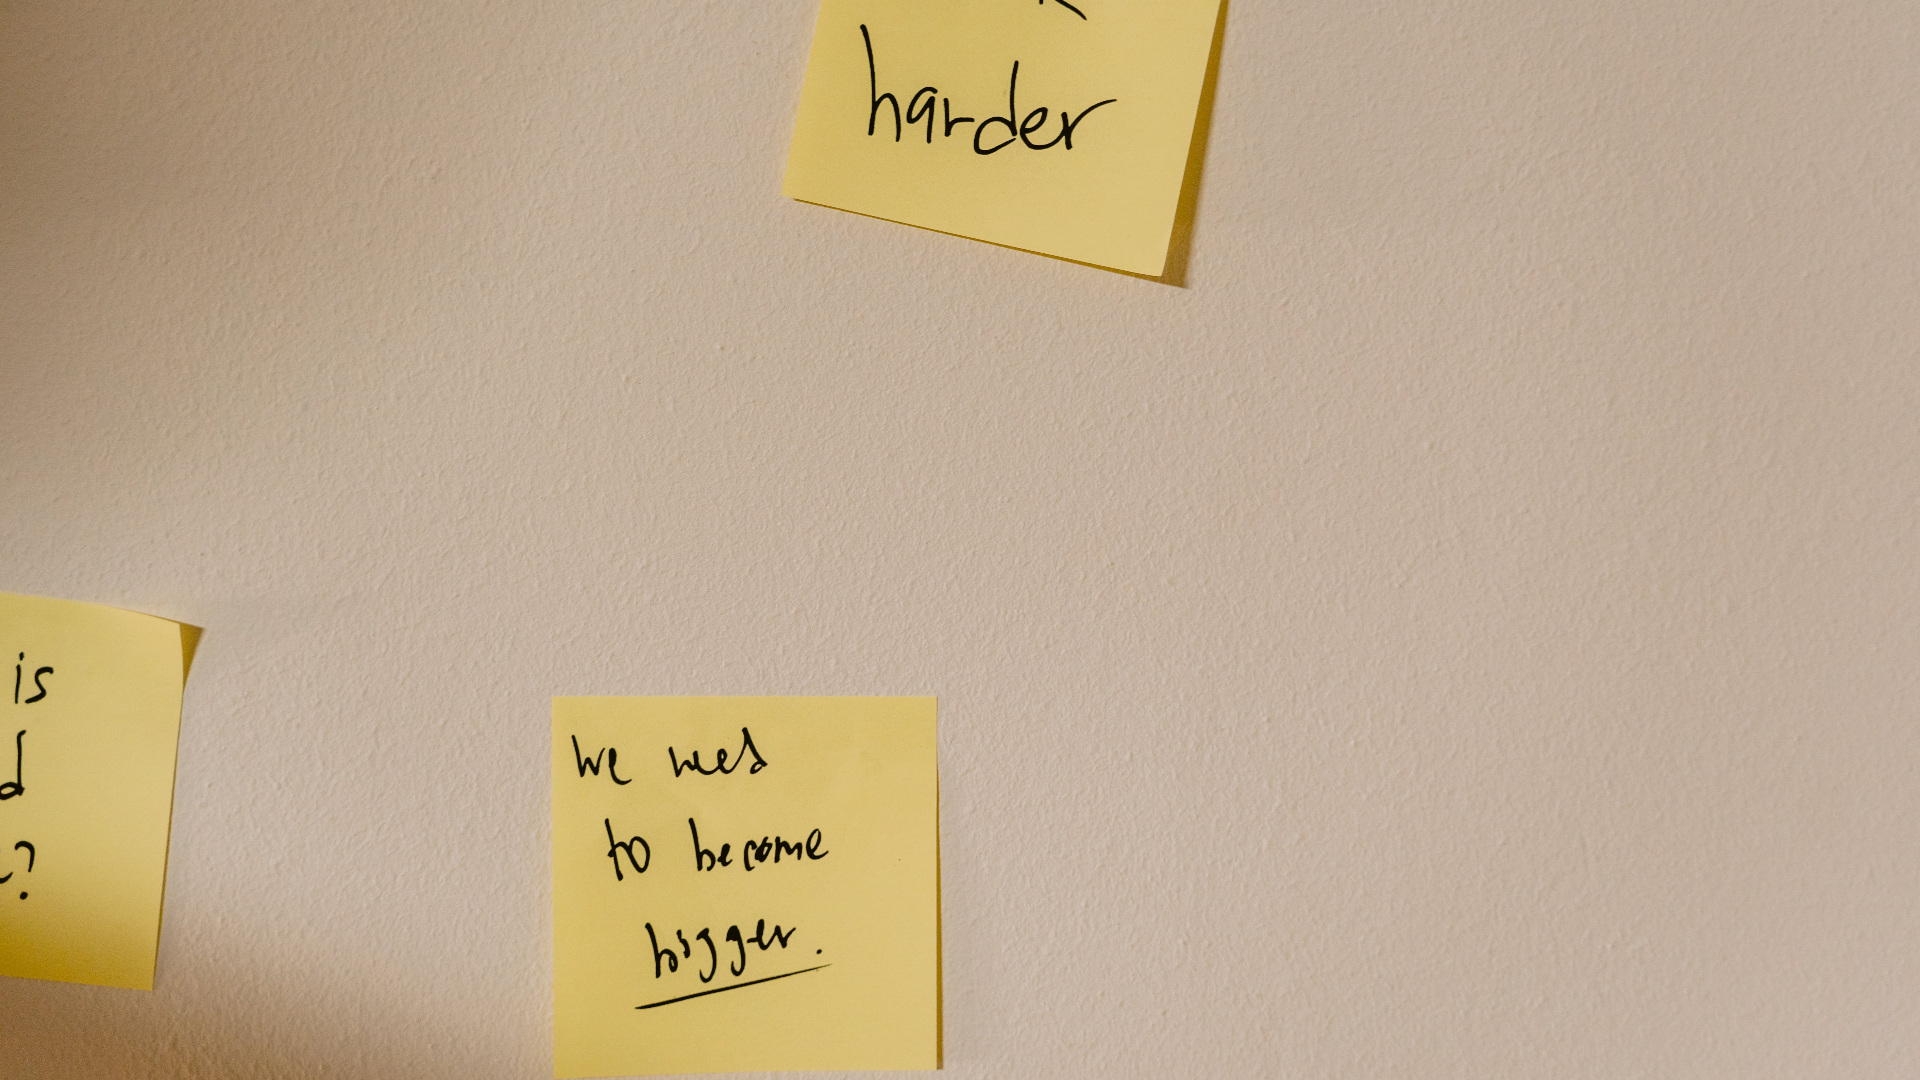 harder
is
we need
to become
bigger.